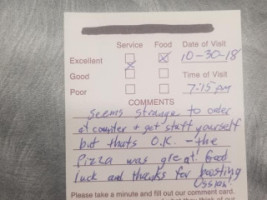 Service Food Date of Visit
Excellent 10-30-18
Good Time of Visit
Poor 7:15 pm
COMMENTS
seems strange to order
at counter + get stuff yourself
but thats O.K. - the
Pizza was great good
luck and thanks for hosting
Ossian!
Please take a minute and fill out our comment card.